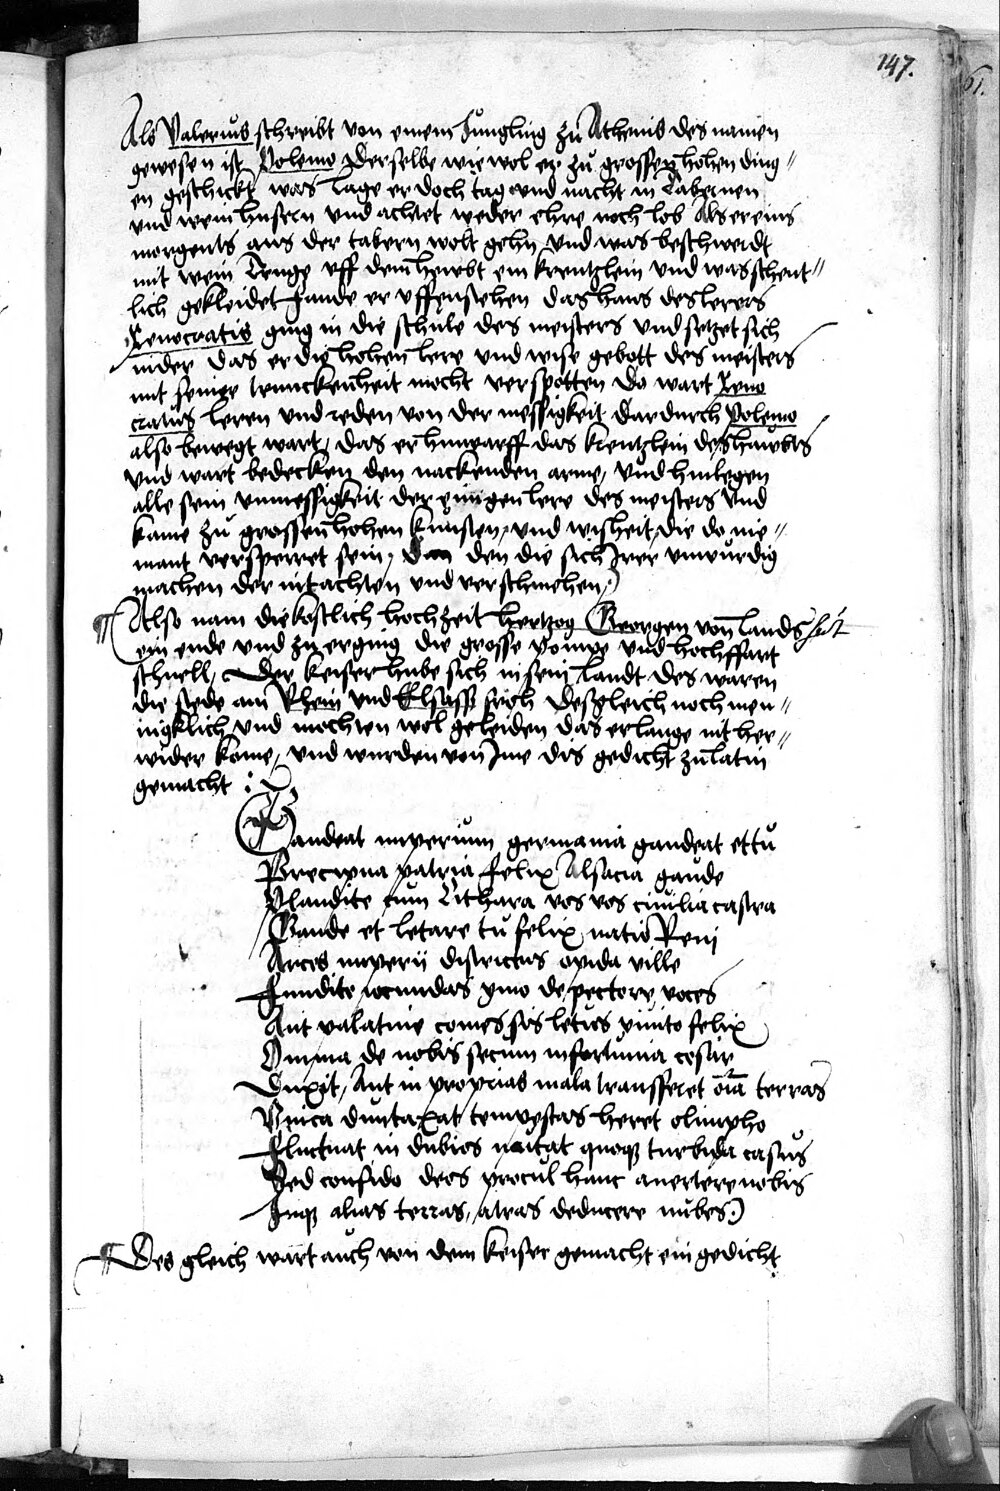 147.
Als Valerius schreibt von einem Jungling zu Athenis des namen
gewesen ist Polemo Derselbe wie wol er zu grossen hohen ding〃
en geschickt was Lage er doch tag vnd nacht in Tabernen
vnd wein husern vnd achtet weder ehre noch lob Als er eins
morgents aus der tabern wolt gehn vnd was beschwerdt
mit wein Truge vff dem hewbt ein krentzlein vnd was schent〃
lich gekleidet fande er vffenstehen das haus des lerers
Xenocratis ging in die schule des meisters vnd setzet sich
nider das er die hohen lere vnd wise gebott des meisters
mit seiner trunckenheit mocht verspotten do wart Xeno
cratus leren vnd reden von der messigkeit dardurch Polemo
also bewegt wart, das er hinwarff das krentzlein des hawbts
vnd wart bedecken den nackenden arme, vnd hinlegen
alle sein vnmessigkeit der einigen lere des meisters vnd
kame zu grossen hohen kunsten, vnd wisheit, die do nie〃
mant versperret sein, dan den die sich Irer vnwurdig
machen der nit achten vnd verschmehen
Also nam die kostlich hochzeit hertzog Georgen von landshut
ein ende vnd zu erging die grosse pompe vnd hochffart
schnell, Der keiser hube sich in sein landt des waren
die stede am Rhein vnd Elsass froh desgleich noch men〃
nigklich vnd mochten wol geleiden das er lange nit her〃
wider kome, vnd wurden von Ime dis gedicht zu latin
gemacht :
Gaudeat imperium germania gaudeat et tu
Precipua patria felix Alsacia gaude
Plaudite cum Cithara vos vos ciuilia castra
Gaude et letare tu felix natio Reni
Arces imperii districtus opida ville
Fundite iocundas ymo de pectore voces
Aut palatine comes sis letus viuito felix
Omnia de nobis secum infortunia cesar
Duxit, Aut in proprias mala transfferet oīa terras
Vnica duntaxat tempestas heret olimpho
Fluctuat in dubios nutat quoqz turbida casus
Sed confido deos procul hanc auertere nobis
Inqz alias terras, atras deducere nubes
Des gleich wart auch von dem keiser gemacht ein gedicht